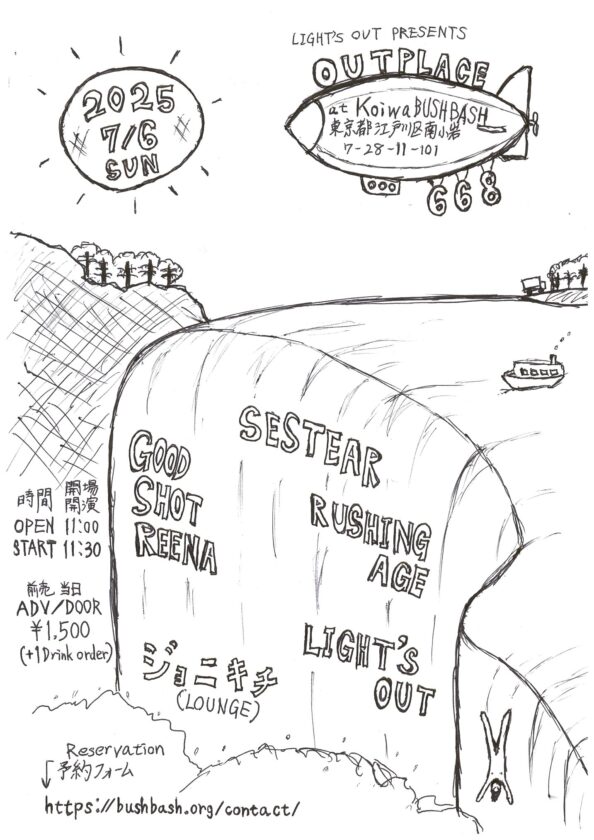 LIGHT'S OUT PRESENTS
OUTPLACE
2025
7/6
SUN
at Koiwa BUSHBASH
東京都江戸川区南小岩
7-28-11-101
668
SESTEAR
GOOD
SHOT
REENA
RUSHING
AGE
時間 開場
開演
OPEN 11:00
START 11:30
前売 当日
ADV/DOOR
¥1,500
(+1 Drink order)
LIGHT'S
OUT
ジョニキチ
(LOUNGE)
Reservation
予約フォーム
https://bushbash.org/contact/